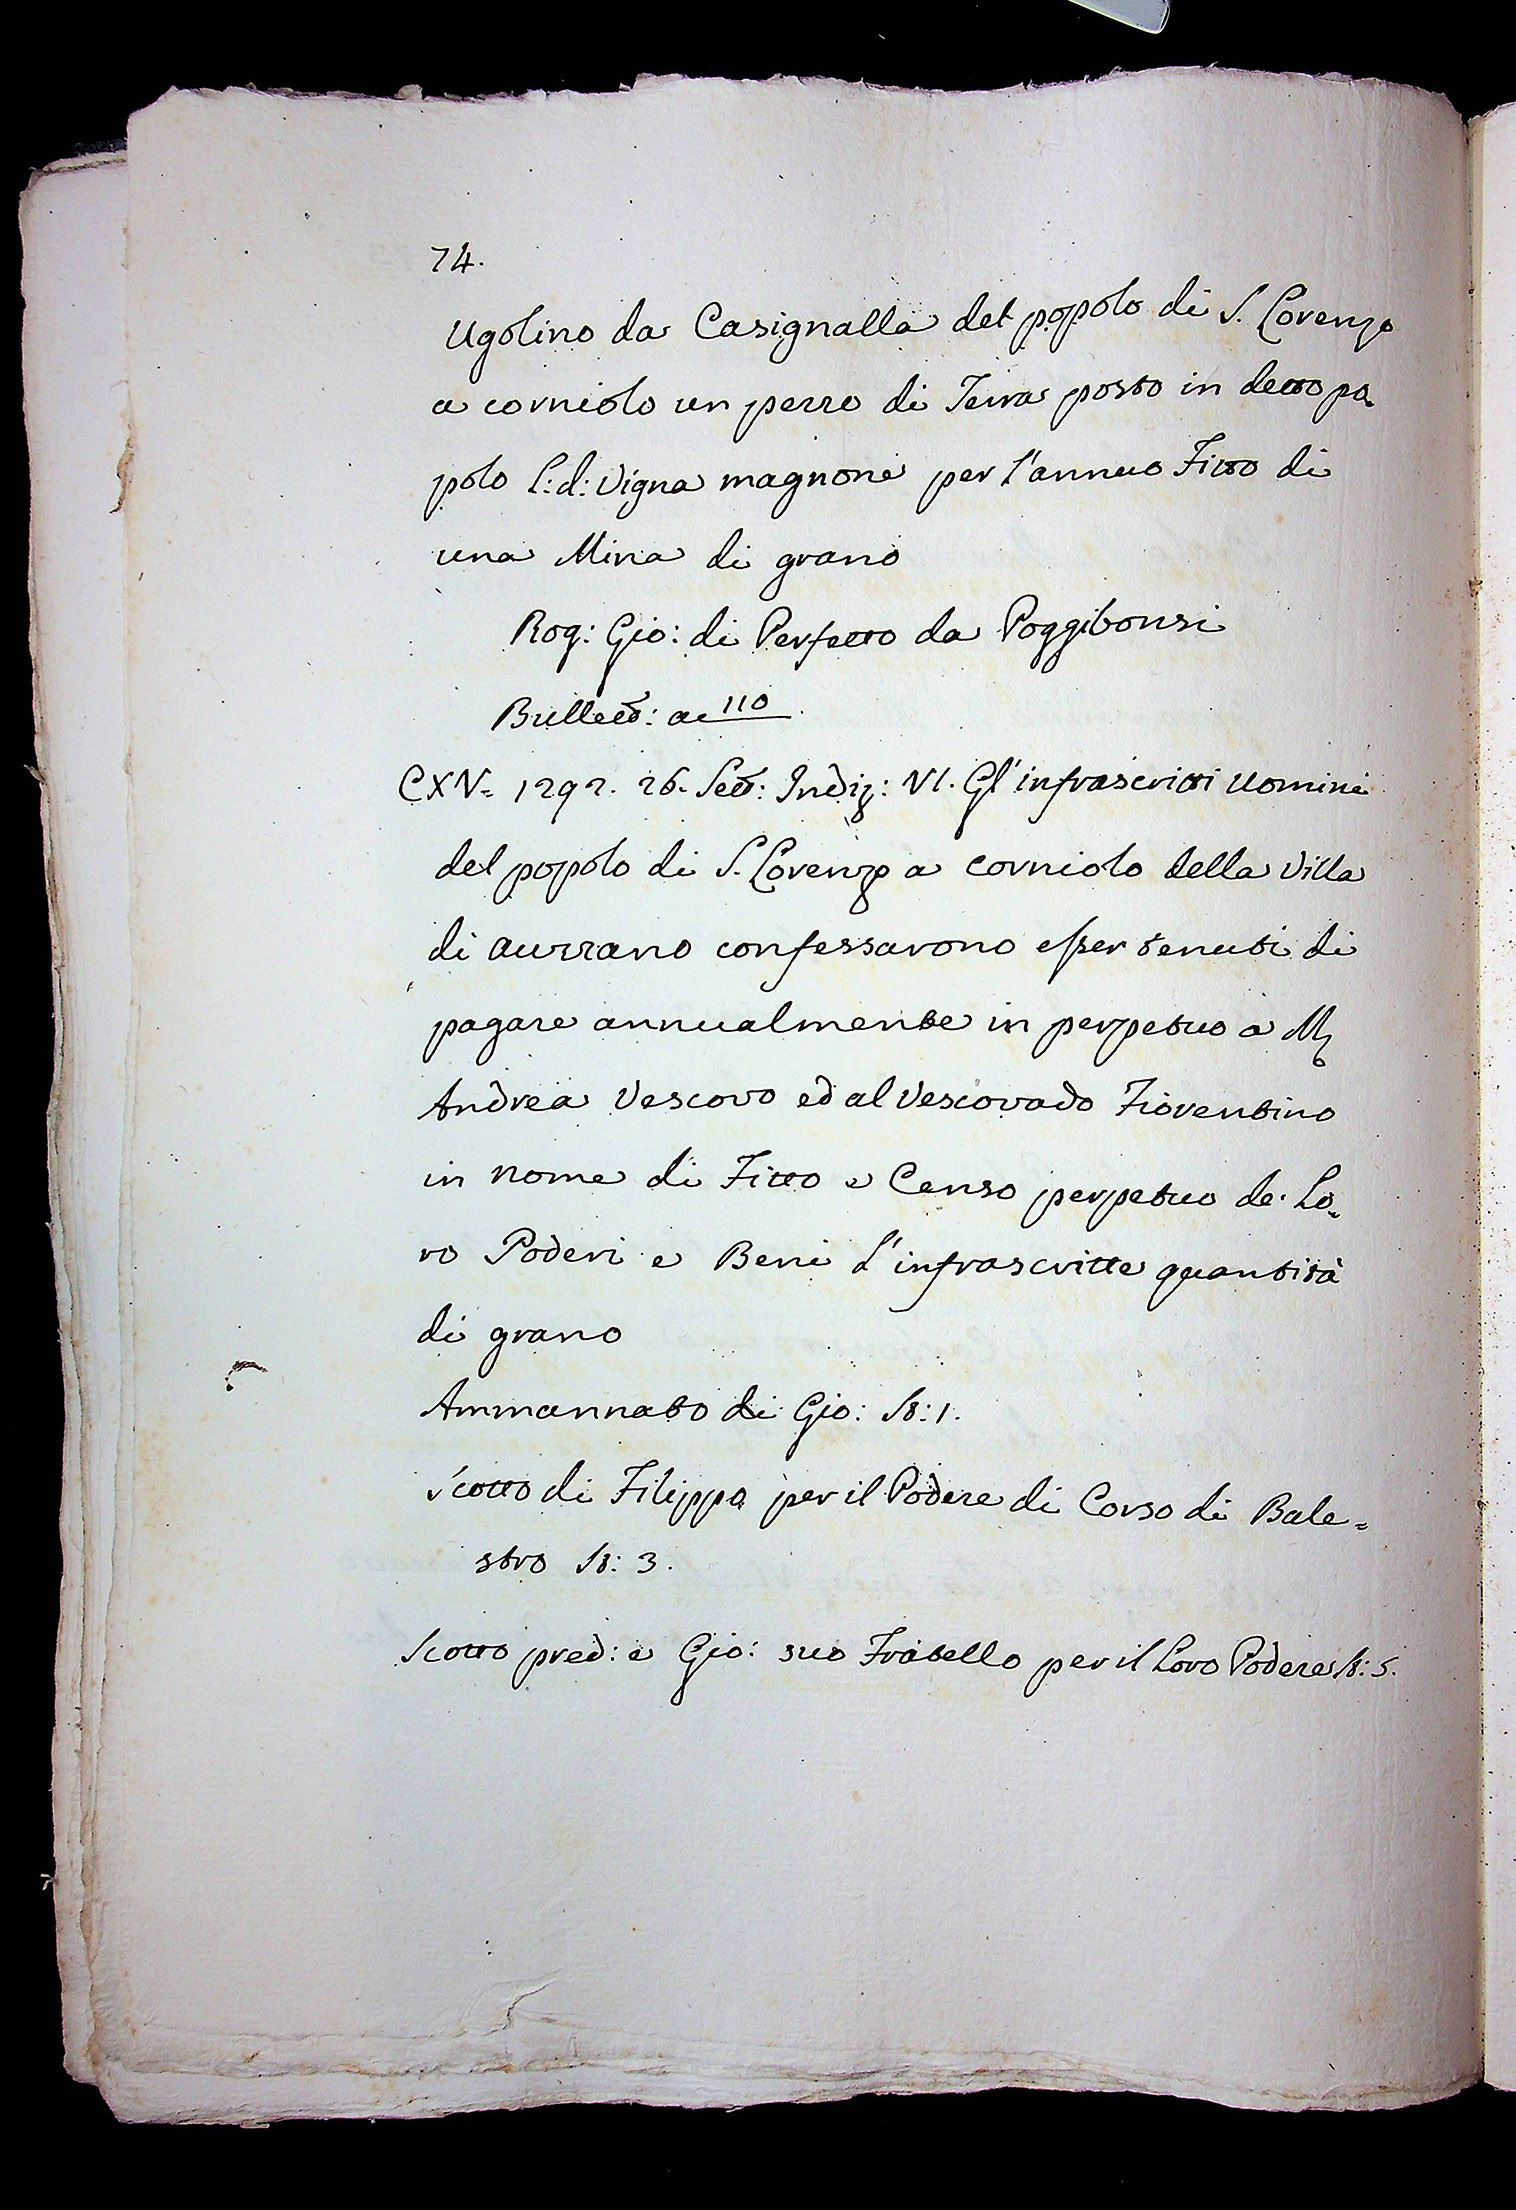 74.
Ugolino da Casignalla del popolo di S. Lorenzo
a corniolo un pezzo di Terra posto in detto po=
polo l: d: Vigna magnone per l'annuo Fitto di
una Mina di grano
Rog: Gio: di Perfetto da Poggibonsi
Bullett: a 110.
CXV= 1292. 26. Sett: Indiz: VI. Gl'infrascritti Uomini
del popolo di S. Lorenzo a corniolo della Villa
di aurrano confessarono esser tenuti di
pagare annualmente in perpetuo a M
Andrea Vescovo ed al Vescovado Fiorentino
in nome di Fitto e Censo perpetuo de' Lo=
ro Poderi e Beni l'infrascritte quantità
di grano
Ammannato di Gio: St: 1.
Scotto di Filippo per il Podere di Corso di Bale=
stro St: 3.
Scotto pred: e Gio: suo Fratello per il Loro Podere St: 5.